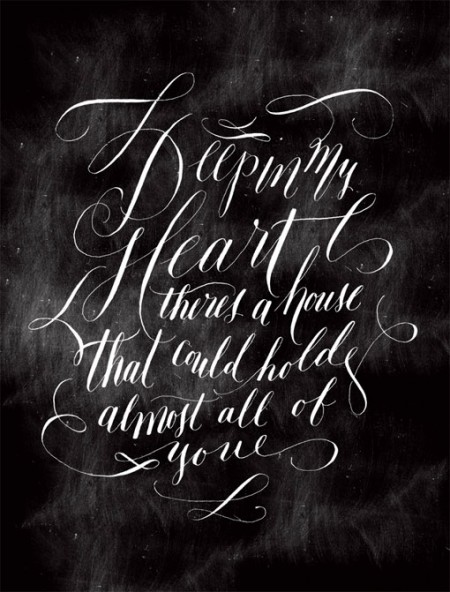 Deep in My
Heart
theres a house
that could hold
almost all of
you